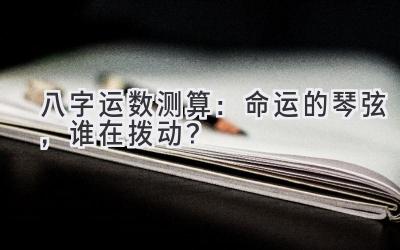 八字运数测算：命运的琴弦
，谁在拨动？